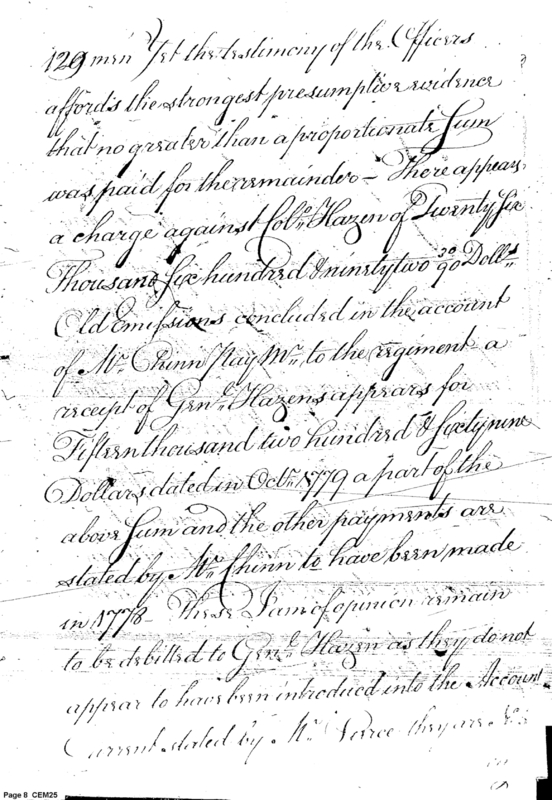 129 men Yet the testimony of the Officers
affords the strongest presumptive evidence
that no greater than a proportionate Sum
was paid for the remainder – There appears
a charge against Colo. Hazen of Twenty Six
Thousand Six hundred & ninety two 30/90 Dolls
Old Emissions concluded in the account
of Mr. Chinn Pay Mr. to the regiment a
receipt of Genl. Hazens appears for
Fifteen thousand two hundred & sixty nine
Dollars dated in Octr. 1779 a part of the
above Sum and the other payments are
stated by Mr. Chinn to have been made
in 1778 – These I am of opinion remain
to be debitted to Genl. Hazen as they do not
appear to have been introduced into the Account
Current stated by Mr. Pierce they are
Page 8 CEM25